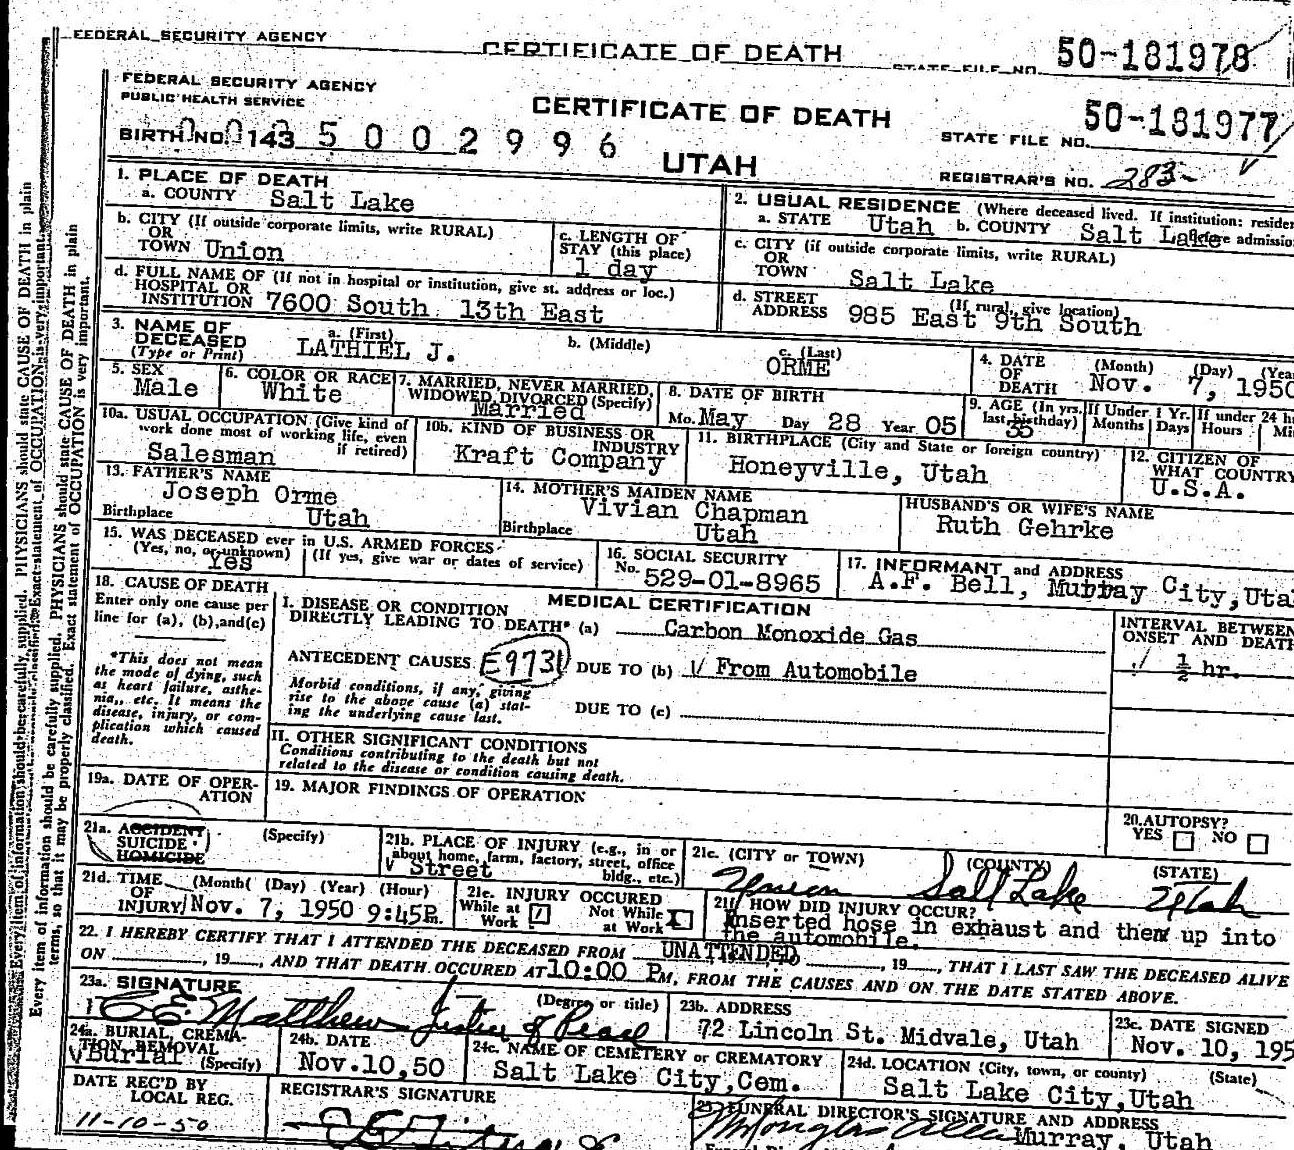 FEDERAL SECURITY AGENCY
CERTIFICATE OF DEATH
STATE FILE NO. 50-181978
FEDERAL SECURITY AGENCY
PUBLIC HEALTH SERVICE
CERTIFICATE OF DEATH
STATE FILE NO. 50-181977
BIRTH NO. 143 5 0 0 2 9 9 6
UTAH
REGISTRAR'S NO. 283-
Every item of information should be carefully supplied. PHYSICIANS should state CAUSE OF DEATH in plain
terms, so that it may be properly classified. Exact statement of OCCUPATION is very important.
1. PLACE OF DEATH
a. COUNTY Salt Lake
2. USUAL RESIDENCE (Where deceased lived. If institution: reside
a. STATE Utah b. COUNTY Salt Lake before admissio
b. CITY (If outside corporate limits, write RURAL)
OR
TOWN Union
c. LENGTH OF
STAY (this place)
1 day
c. CITY (if outside corporate limits, write RURAL)
OR
TOWN Salt Lake
d. FULL NAME OF (If not in hospital or institution, give st. address or loc.)
HOSPITAL OR
INSTITUTION 7600 South 13th East
d. STREET (If rural, give location)
ADDRESS 985 East 9th South
3. NAME OF
DECEASED
(Type or Print)
a. (First)
LATHIEL J.
b. (Middle)
c. (Last)
ORME
4. DATE (Month) (Day) (Yea
OF
DEATH Nov. 7, 1950
5. SEX
Male
6. COLOR OR RACE
White
7. MARRIED, NEVER MARRIED,
WIDOWED, DIVORCED (Specify)
Married
8. DATE OF BIRTH
Mo. May Day 28 Year 05
9. AGE (In yrs.
last birthday)
If Under 1 Yr.
Months Days
If under 24 h
Hours Mi
10a. USUAL OCCUPATION (Give kind of
work done most of working life, even
if retired)
Salesman
10b. KIND OF BUSINESS OR
INDUSTRY
Kraft Company
11. BIRTHPLACE (City and State or foreign country)
Honeyville, Utah
12. CITIZEN OF
WHAT COUNTRY
U.S.A.
13. FATHER'S NAME
Joseph Orme
Birthplace Utah
14. MOTHER'S MAIDEN NAME
Vivian Chapman
Birthplace Utah
HUSBAND'S OR WIFE'S NAME
Ruth Gehrke
15. WAS DECEASED ever in U.S. ARMED FORCES
(Yes, no, or unknown) (If yes, give war or dates of service)
Yes
16. SOCIAL SECURITY
No. 529-01-8965
17. INFORMANT and ADDRESS
A.F. Bell, Murray City, Uta
18. CAUSE OF DEATH
Enter only one cause per
line for (a), (b), and (c)
*This does not mean
the mode of dying, such
as heart failure, asthe-
nia, etc. It means the
disease, injury, or com-
plication which caused
death.
MEDICAL CERTIFICATION
I. DISEASE OR CONDITION
DIRECTLY LEADING TO DEATH* (a) Carbon Monoxide Gas
ANTECEDENT CAUSES E9731 DUE TO (b) From Automobile
Morbid conditions, if any, giving
rise to the above cause (a) stat-
ing the underlying cause last.
DUE TO (c)
II. OTHER SIGNIFICANT CONDITIONS
Conditions contributing to the death but not
related to the disease or condition causing death.
INTERVAL BETWEEN
ONSET AND DEATH
1/2 hr.
19a. DATE OF OPER-
ATION
19. MAJOR FINDINGS OF OPERATION
20. AUTOPSY?
YES NO
21a. ACCIDENT
SUICIDE
HOMICIDE
(Specify)
21b. PLACE OF INJURY (e.g., in or
about home, farm, factory, street, office
bldg., etc.)
Street
21c. (CITY or TOWN) (COUNTY) (STATE)
Union Salt Lake Utah
21d. TIME (Month) (Day) (Year) (Hour)
OF
INJURY Nov. 7, 1950 9:45P.m.
21e. INJURY OCCURED
While at Work Not While at Work
21f. HOW DID INJURY OCCUR?
Inserted hose in exhaust and then up into
the automobile.
22. I HEREBY CERTIFY THAT I ATTENDED THE DECEASED FROM UNATTENDED, 19, THAT I LAST SAW THE DECEASED ALIVE
ON , 19, AND THAT DEATH OCCURED AT 10:00 P M, FROM THE CAUSES AND ON THE DATE STATED ABOVE.
23a. SIGNATURE (Degree or title)
C E Matthews Justice of Peace
23b. ADDRESS
72 Lincoln St. Midvale, Utah
23c. DATE SIGNED
Nov. 10, 195
24a. BURIAL, CREMA-
TION, REMOVAL
Burial (Specify)
24b. DATE
Nov.10,50
24c. NAME OF CEMETERY or CREMATORY
Salt Lake City,Cem.
24d. LOCATION (City, town, or county) (State)
Salt Lake City,Utah
DATE REC'D BY
LOCAL REG.
11-10-50
REGISTRAR'S SIGNATURE
25. FUNERAL DIRECTOR'S SIGNATURE AND ADDRESS
Murray, Utah